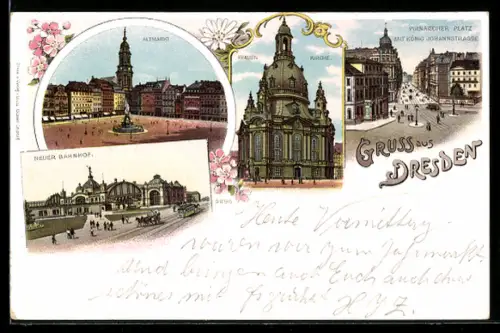 ALTMARKT.
FRAUEN- KIRCHE.
PIRNAISCHER PLATZ
MIT KÖNIG JOHANNSTRASSE.
GRUSS aus
DRESDEN
NEUER BAHNHOF.
Heute Vormittag
waren wir zum Jahrmarkt
und bringen auch Euch auch etwas
schönes mit